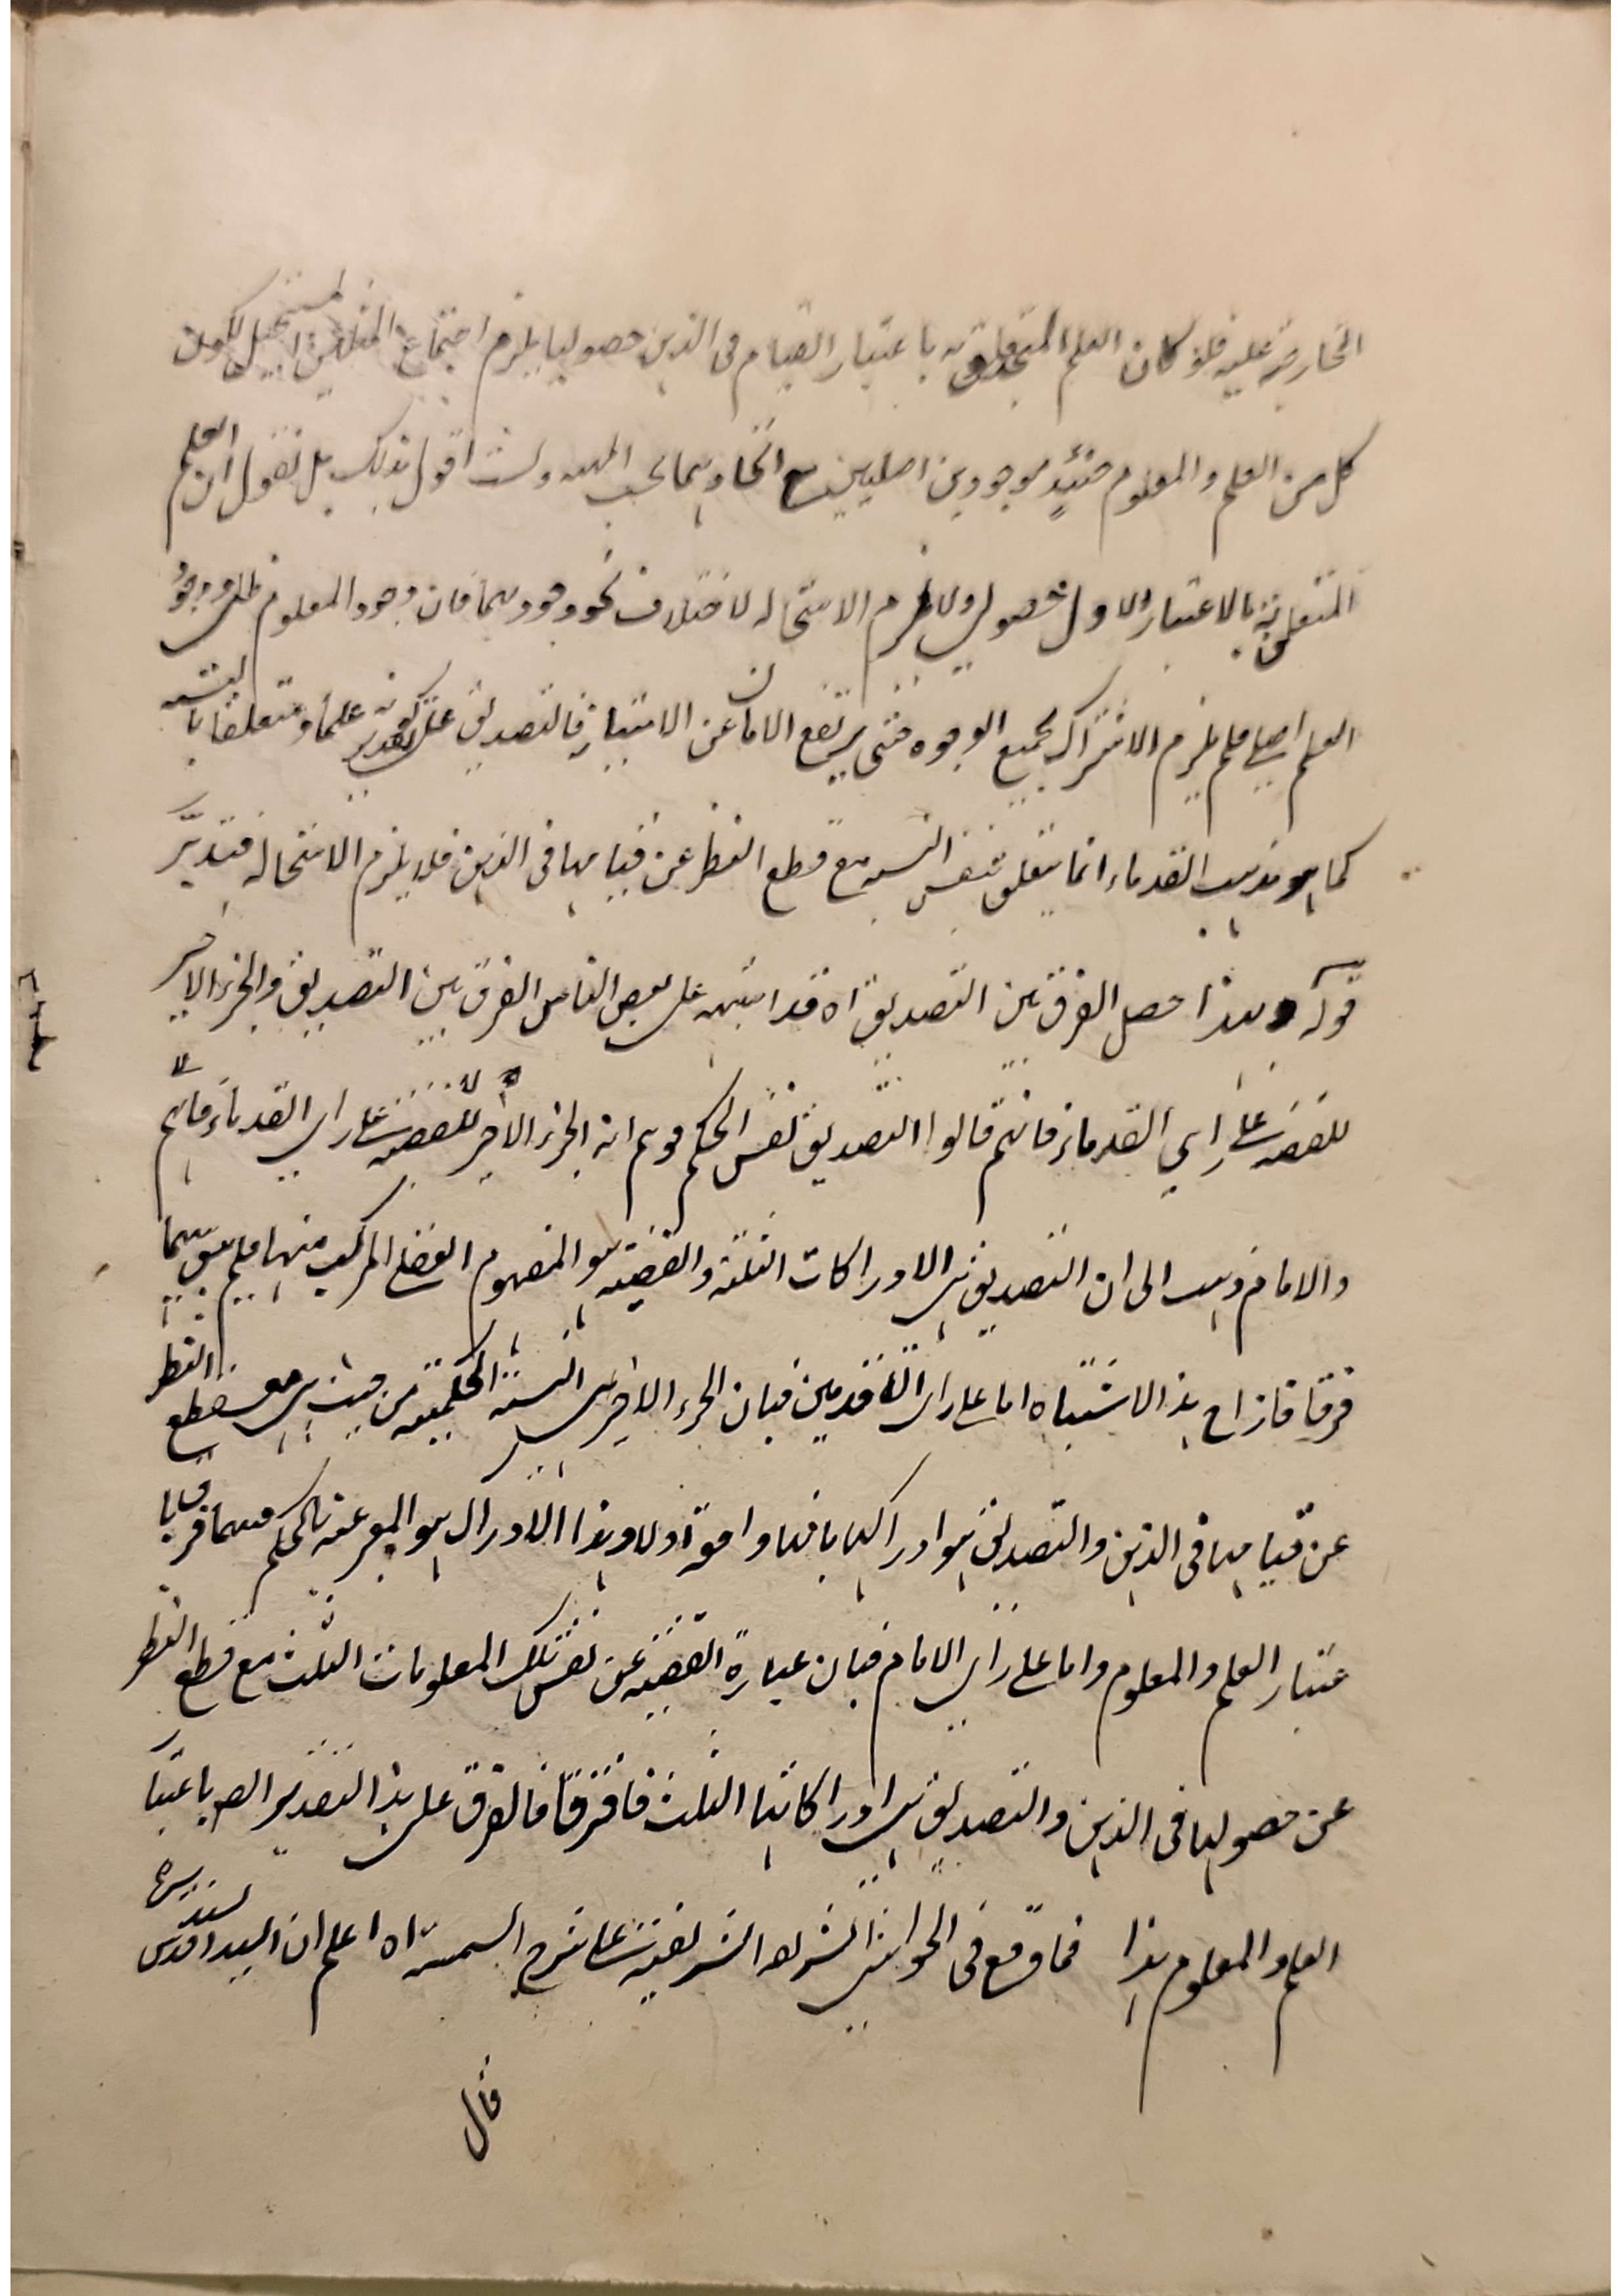 الخارجية عليه فلو كان العلم المتعلق به باعتبار القيام فى الذهن حصوليا يلزم اجتماع المثلين المستحيل لكون
كل من العلم والمعلوم حينئذ موجودين اصليين مع اتحادهما بحسب المهية ولست اقول بذلك بل نقول ان العلم
المتعلق به بالاعتبار الاول حصولى ولا يلزم الاستحالة لاختلاف نحو وجودهما فان وجود المعلوم ظلى ووجود
العلم اصلى فلم يلزم الاشتراك بجميع الوجوه حتى يرتفع الامان عن الامتياز فالتصديق على تقدير كونه علما ومتعلقا بالنسبة
كما هو مذهب القدماء انما يتعلق بنفس النسبة مع قطع النظر عن قيامها فى الذهن فلا يلزم الاستحالة فتدبر
قوله وبهذا حصل الفرق بين التصديق اه قد اشتبه على بعض الناس الفرق بين التصديق والجزء الاخير
للقضية على راي القدماء فانهم قالوا التصديق نفس الحكم فوهم انه الجزء الاخير للقضية على راى القدماء فانهم
والامام ذهب الى ان التصديق هى الادراكات الثلثة والقضية هو المفهوم العقلى المركب منها فلم يبق بينهما
فرقا فازاح هذا الاشتباه اما على راى المتقدمين فبان الجزء الاخير هى النسبة الحكمية من حيث هى مع قطع النظر
عن قيامها فى الذهن والتصديق هو ادراكها بانها واقعة اولا وهذا الادراك هو المعبر عنه بالحكم فهما فرقا با
عتبار العلم والمعلوم واما على راى الامام فبان عبارة القضية عن نفس تلك المعلومات الثلث مع قطع النظر
عن حصولها فى الذهن والتصديق هى ادراكاتها الثلث فافترقا فالفرق على هذا التقدير ايضا باعتبار
العلم والمعلوم هذا فما وقع فى الحواشى الشريفة على شرح الشمسية اه اعلم ان السيد السند قدس سره
قال